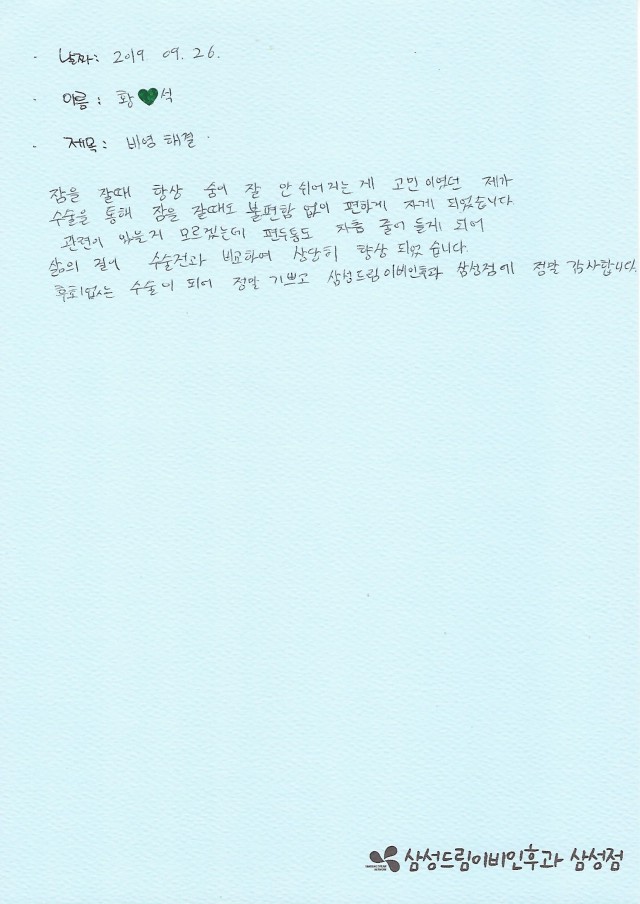 · 날짜: 2019 09. 26.
· 이름: 황💚석
· 제목: 비염 해결
잠을 잘때 항상 숨이 잘 안 쉬어지는 게 고민이였던 제가
수술을 통해 잠을 잘때도 불편함 없이 편하게 자게 되었습니다
관련이 있을지 모르겠는데 편두통도 차츰 줄어 들게 되어
삶의 질이 수술전과 비교하여 상당히 향상 되었습니다.
후회없는 수술이 되어 정말 기쁘고 삼성드림이비인후과 삼성점에 정말 감사합니다.
삼성드림이비인후과 삼성점